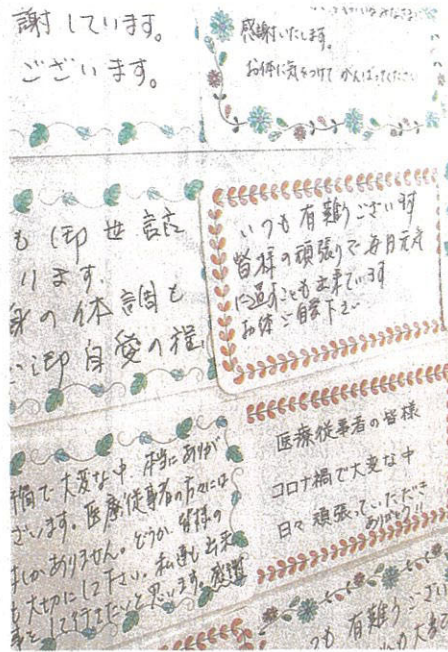 謝しています。
ございます。
感謝いたします。
お体に気をつけて がんばってください
も御世話
ります。
身の体調も
御自愛の程
いつも有難うございます
皆様の頑張りで毎日元気
に過すことも出来ています
お体ご自愛下さい
禍で大変な中、本当にありが
ざいます。医療従事者の方々には
しかありません。どうか、皆様の
も大切にして下さい。私達も出来
事をして行きたいと思います。感謝
医療従事者の皆様
コロナ禍で大変な中
日々頑張っていただき
ありがとう!!
も 有難うござい